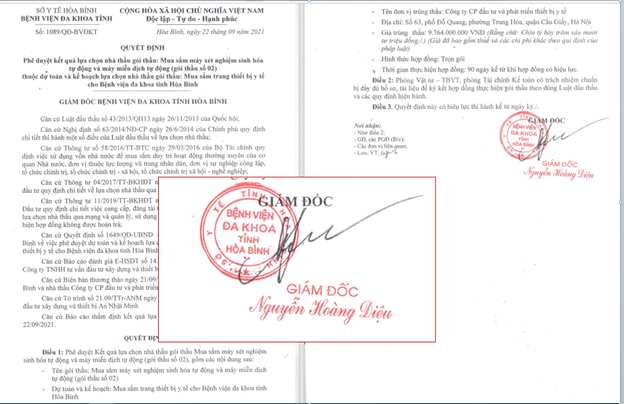 SỞ Y TẾ HÒA BÌNH
BỆNH VIỆN ĐA KHOA TỈNH
Số: 1089/QĐ-BVĐKT
CỘNG HÒA XÃ HỘI CHỦ NGHĨA VIỆT NAM
Độc lập - Tự do - Hạnh phúc
Hòa Bình, ngày 22 tháng 09 năm 2021
QUYẾT ĐỊNH
Phê duyệt kết quả lựa chọn nhà thầu gói thầu: Mua sắm máy xét nghiệm sinh hóa
tự động và máy miễn dịch tự động (gói thầu số 02)
thuộc dự toán và kế hoạch lựa chọn nhà thầu: Mua sắm trang thiết bị y tế
cho Bệnh viện đa khoa tỉnh Hòa Bình
GIÁM ĐỐC BỆNH VIỆN ĐA KHOA TỈNH HÒA BÌNH
Căn cứ Luật đấu thầu số 43/2013/QH13 ngày 26/11/2013 của Quốc hội;
Căn cứ Nghị định số 63/2014/NĐ-CP ngày 26/6/2014 của Chính phủ quy định
chi tiết thi hành một số điều của Luật đấu thầu về lựa chọn nhà thầu;
Căn cứ Thông tư số 58/2016/TT-BTC ngày 29/03/2016 của Bộ Tài chính quy
định việc sử dụng vốn nhà nước để mua sắm duy trì hoạt động thường xuyên của cơ
quan Nhà nước, đơn vị thuộc lực lượng vũ trang nhân dân, đơn vị sự nghiệp công lập,
tổ chức chính trị, tổ chức chính trị - xã hội, tổ chức chính trị xã hội - nghề nghiệp;
Căn cứ Thông tư 04/2017/TT-BKHĐT
đầu tư quy định chi tiết về lựa chọn nhà thầu qua
Căn cứ Thông tư 11/2019/TT-BKHĐT ngày
Đầu tư quy định chi tiết việc cung cấp, đăng tải
lựa chọn nhà thầu qua mạng và quản lý, sử dụng
hợp đồng không được hoàn trả;
Căn cứ Quyết định số 1649/QĐ-UBND
Bình về việc phê duyệt dự toán và kế hoạch
thiết bị y tế cho Bệnh viện đa khoa tỉnh Hòa Bình;
Căn cứ Báo cáo đánh giá E-HSDT số 14.
Công ty TNHH tư vấn đầu tư xây dựng và thiết bị
Căn cứ Biên bản thương thảo ngày
Bình và nhà thầu Công ty CP đầu tư và phát triển
Căn cứ Tờ trình số 21.09/TTr-ANM ngày
đầu tư xây dựng và thiết bị An Nhật Minh
Căn cứ Báo cáo thẩm định kết quả
22/09/2021.
QUYẾT ĐỊNH
Điều 1: Phê duyệt Kết quả lựa chọn nhà thầu gói thầu Mua sắm máy xét nghiệm
sinh hóa tự động và máy miễn dịch tự động (gói thầu số 02), gồm các nội dung sau:
- Tên gói thầu: Mua sắm máy xét nghiệm sinh hóa tự động và máy miễn dịch
tự động (gói thầu số 02)
- Dự toán và kế hoạch: Mua sắm trang thiết bị y tế cho Bệnh viện đa khoa tỉnh
Hòa Bình
- Tên đơn vị trúng thầu: Công ty CP đầu tư và phát triển thiết bị y tế
- Địa chỉ: Số 63, phố Đỗ Quang, phường Trung Hòa, quận Cầu Giấy, Hà Nội
- Giá trúng thầu: 9.764.000.000 VNĐ (Bằng chữ: Chín tỷ bảy trăm sáu mươi
tư triệu đồng./.) (Giá đã bao gồm thuế và các chi phí khác theo qui định của
pháp luật)
- Hình thức hợp đồng: Trọn gói
- Thời gian thực hiện hợp đồng: 90 ngày kể từ khi hợp đồng có hiệu lực.
Điều 2: Phòng Vật tư – TBYT, phòng Tài chính Kế toán có trách nhiệm chuẩn
bị đầy đủ hồ sơ, tài liệu để ký kết hợp đồng thực hiện gói thầu theo đúng Luật đấu thầu
và các quy định hiện hành.
Điều 3. Quyết định này có hiệu lực thi hành kể từ ngày ký.
Nơi nhận:
- Như điều 2;
- GĐ, các PGĐ (B/c);
- Các đơn vị liên quan;
- Lưu: VT,
GIÁM ĐỐC
BỆNH VIỆN
ĐA KHOA
TỈNH
HÒA BÌNH
GIÁM ĐỐC
Nguyễn Hoàng Diệu
GIÁM ĐỐC
BỆNH VIỆN
ĐA KHOA
TỈNH
HÒA BÌNH
GIÁM ĐỐC
Nguyễn Hoàng Diệu